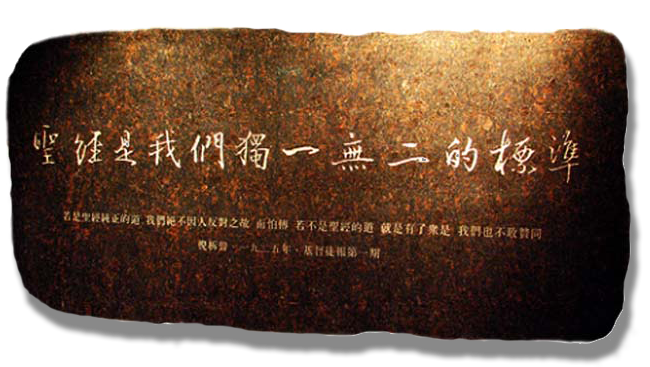 聖經是我們獨一無二的標準
若是聖經純正的道 我們絕不因人反對之故 而怕傳 若不是聖經的道 就是有了衆是 我們也不敢贊同
倪柝聲 一九二五年·基督徒報第一期